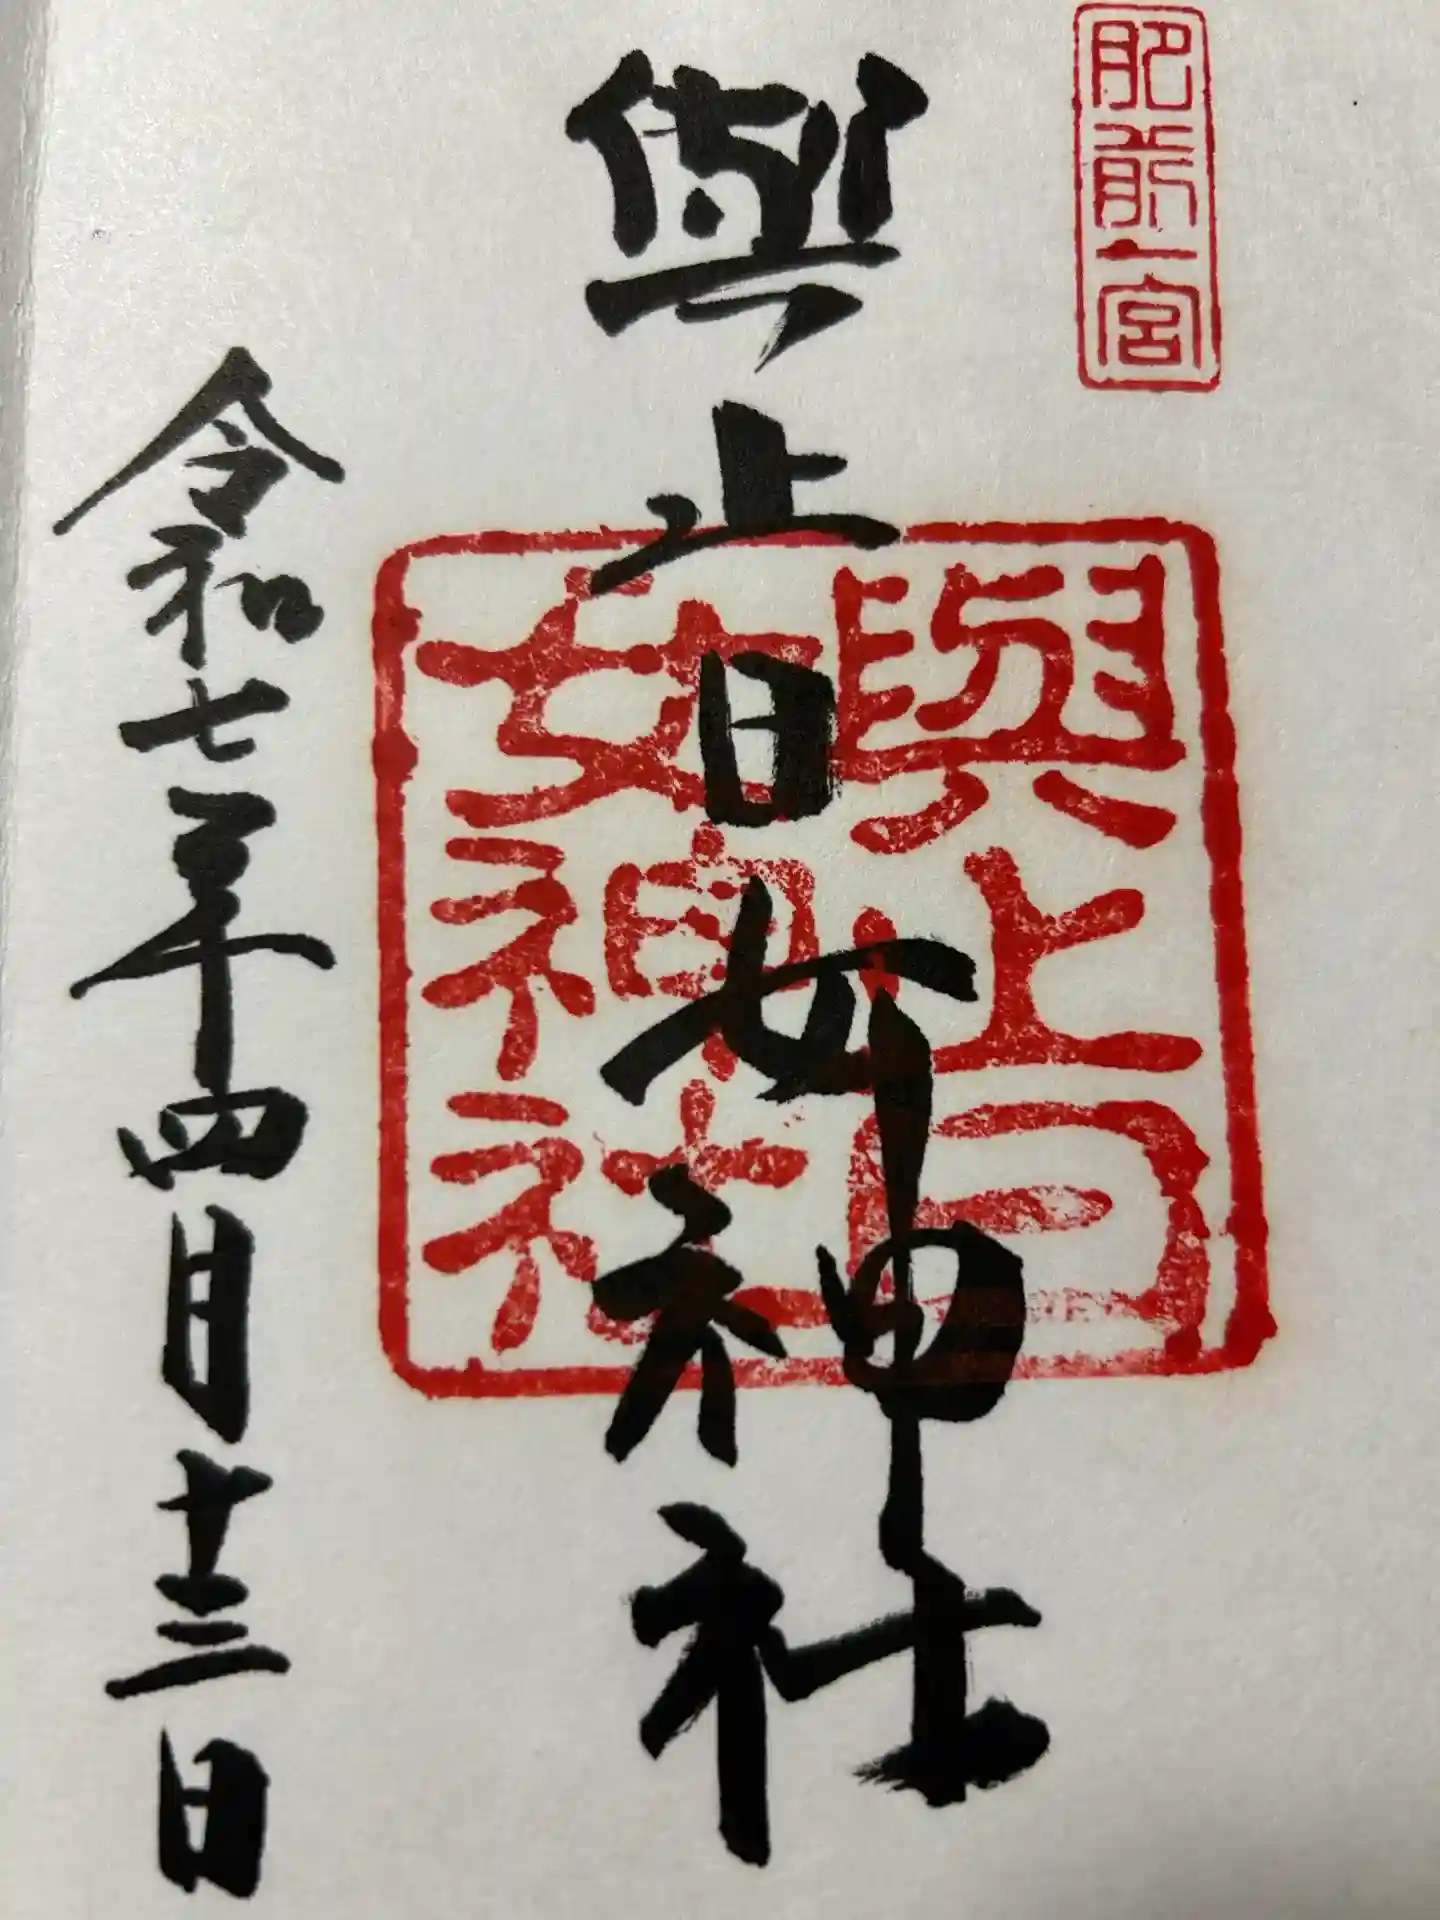 肥前一宮
與止日女神社
與止日
女神社
令和七年四月十三日